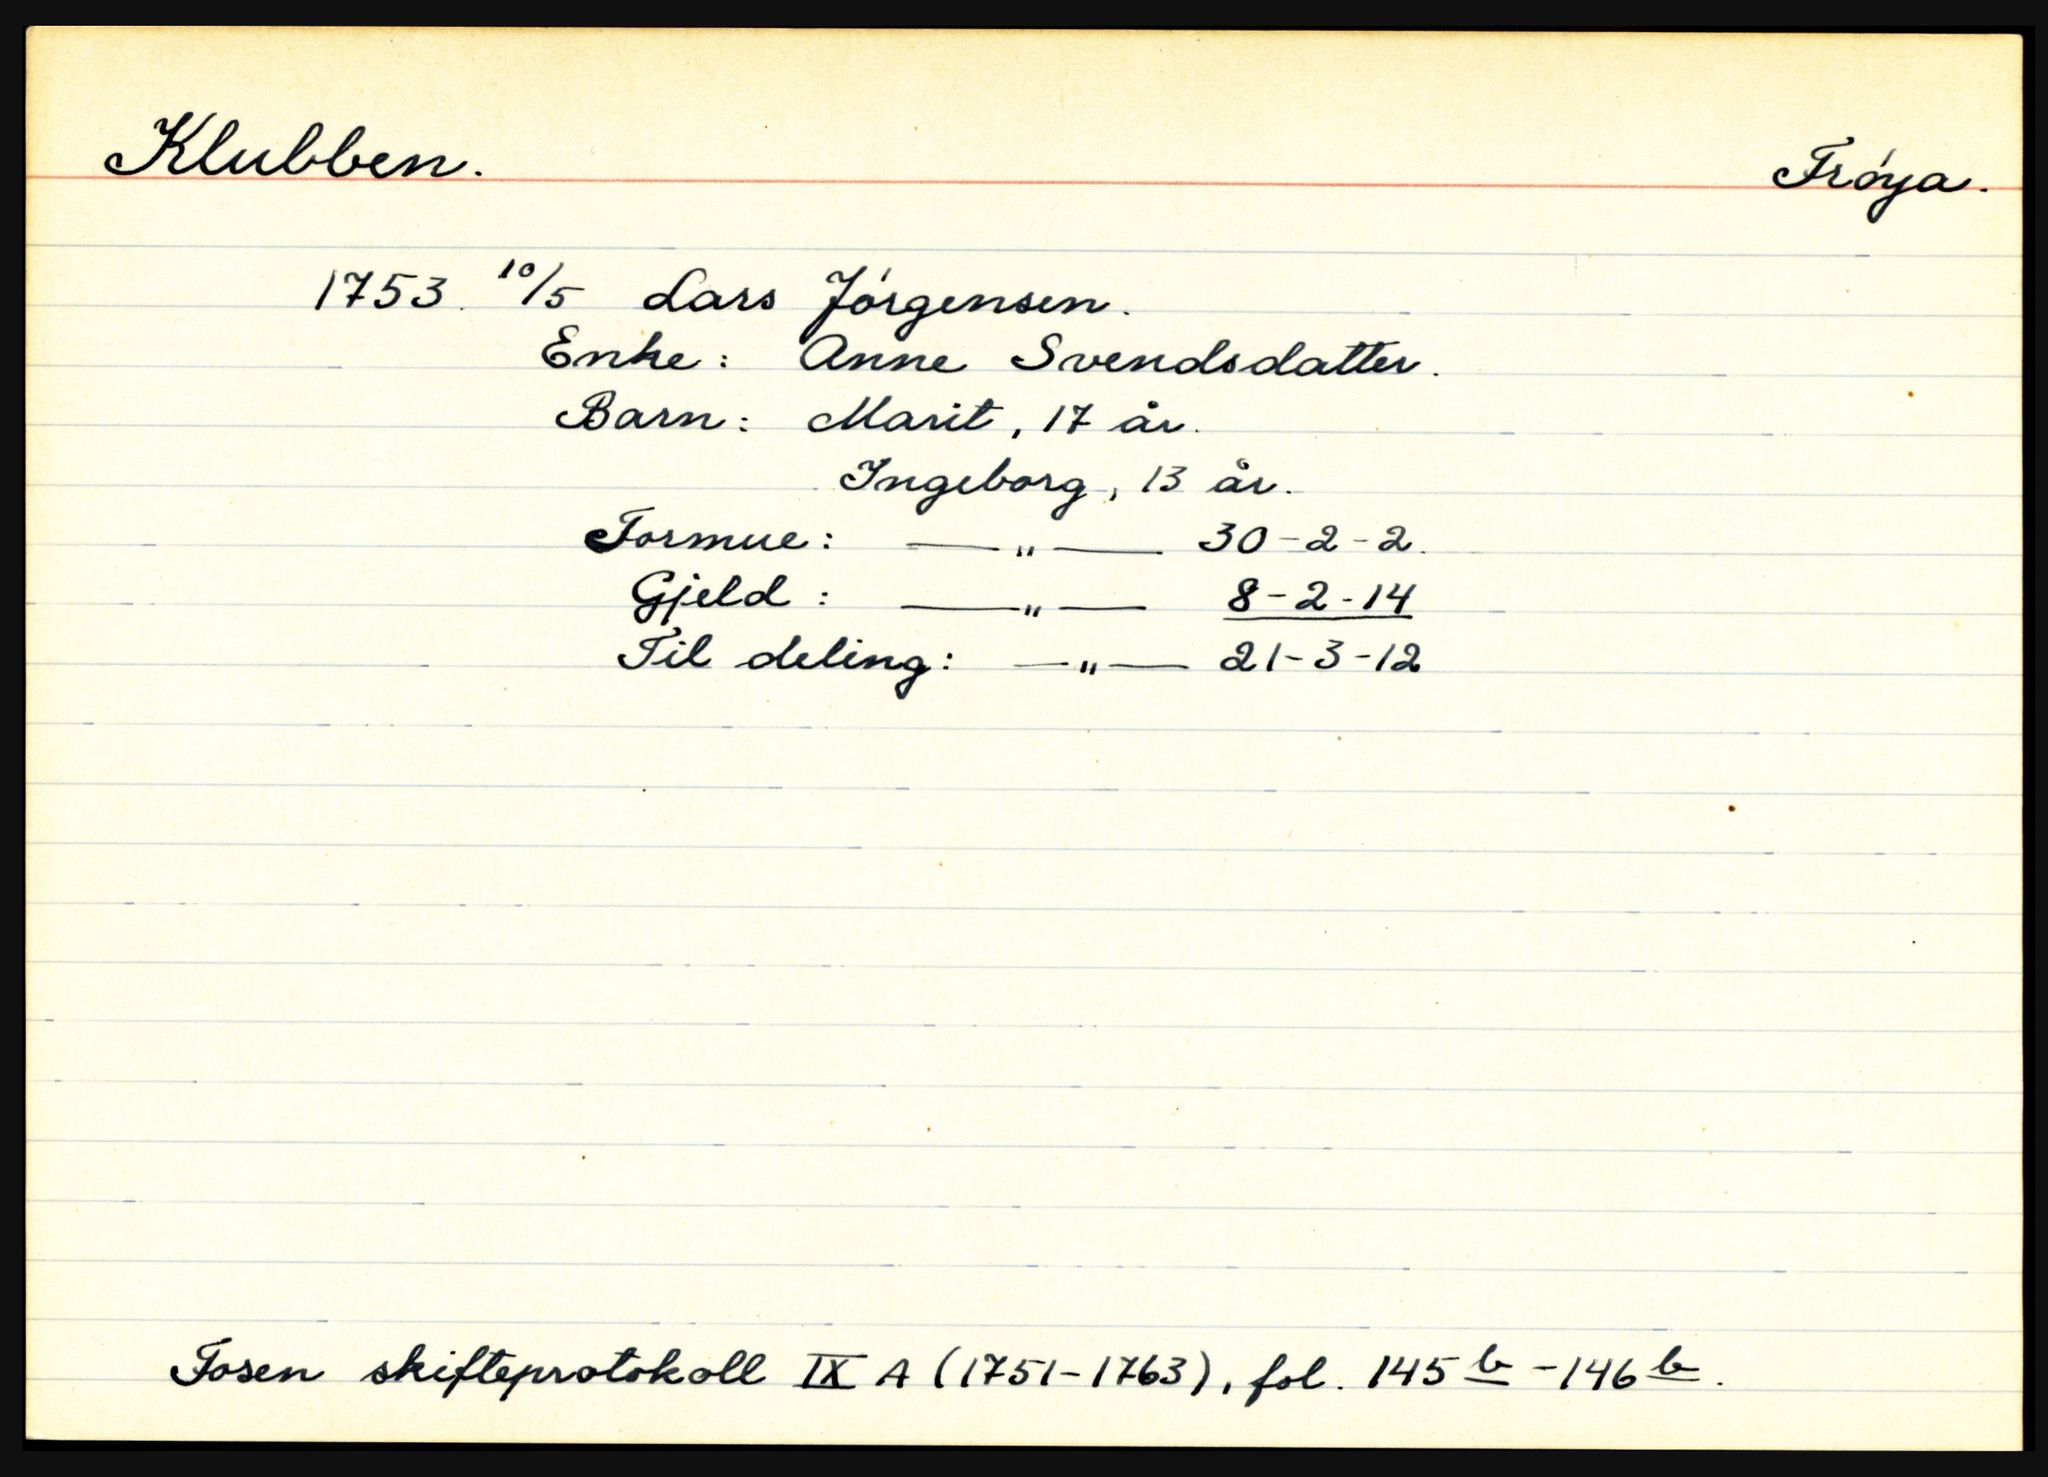 Klubben. Frøya.
1753. 10/5 Lars Jørgensen.
Enke: Anne Svendsdatter.
Barn: Marit, 17 år.
Ingeborg, 13 år.
Formue: —„— 30-2-2.
Gjeld: —„— 8-2-14
Til deling: —„— 21-3-12
Fosen skifteprotokoll IX A (1751-1763), fol. 145 b - 146 b.